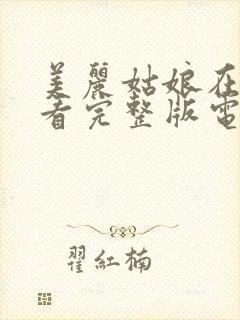 美麗姑娘在
看完整版電
翟紅楠